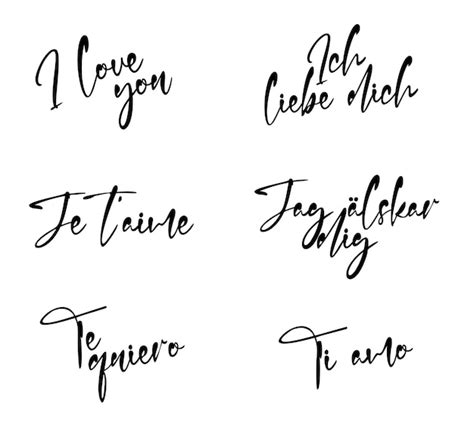 I love
you
Ich
liebe dich
Je t'aime
Jag älskar
dig
Te
quiero
Ti amo